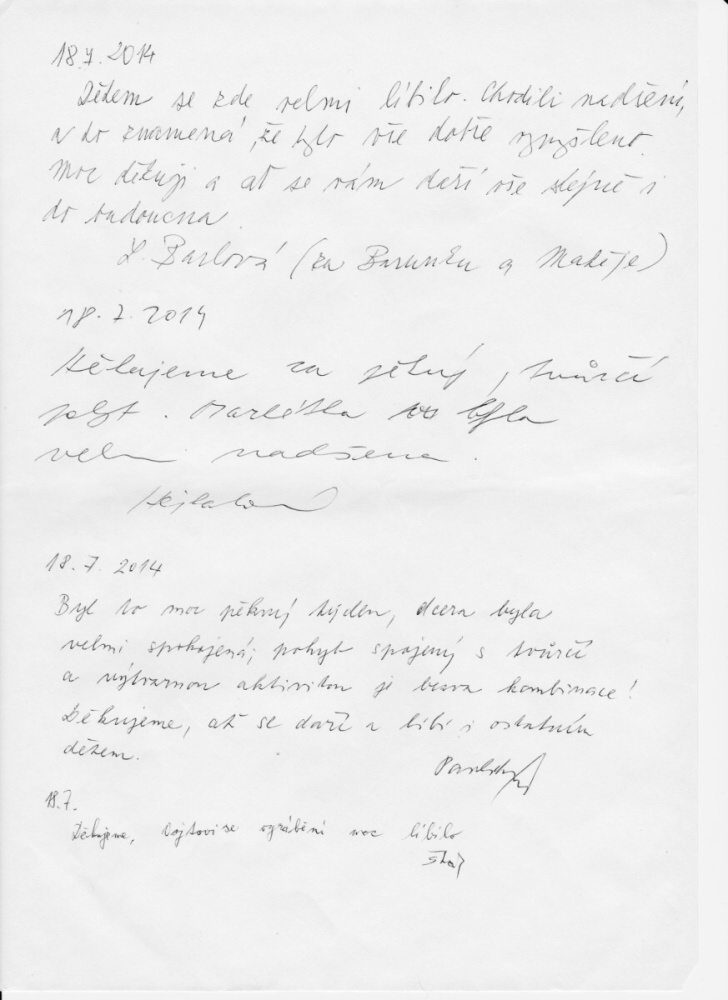 18.7. 2014
Dětem se zde velmi líbilo. Chodili nadšení,
a to znamená, že bylo vše dobře vymyšleno.
Moc děkuji a ať se vám daří vše stejně i
do budoucna.
(za Barunku a Matěje)
18.7.2014
Děkujeme za pěkný, tvůrčí
pobyt. Markétka byla
velmi nadšena.
18.7. 2014
Byl to moc pěkný týden, dcera byla
velmi spokojená; pohyb spojený s tvůrčí
a výtvarnou aktivitou je bezva kombinace!
Děkujeme, ať se daří a líbí i ostatním
dětem.
18.7.
Děkujeme, Vojtovi se vyrábění moc líbilo